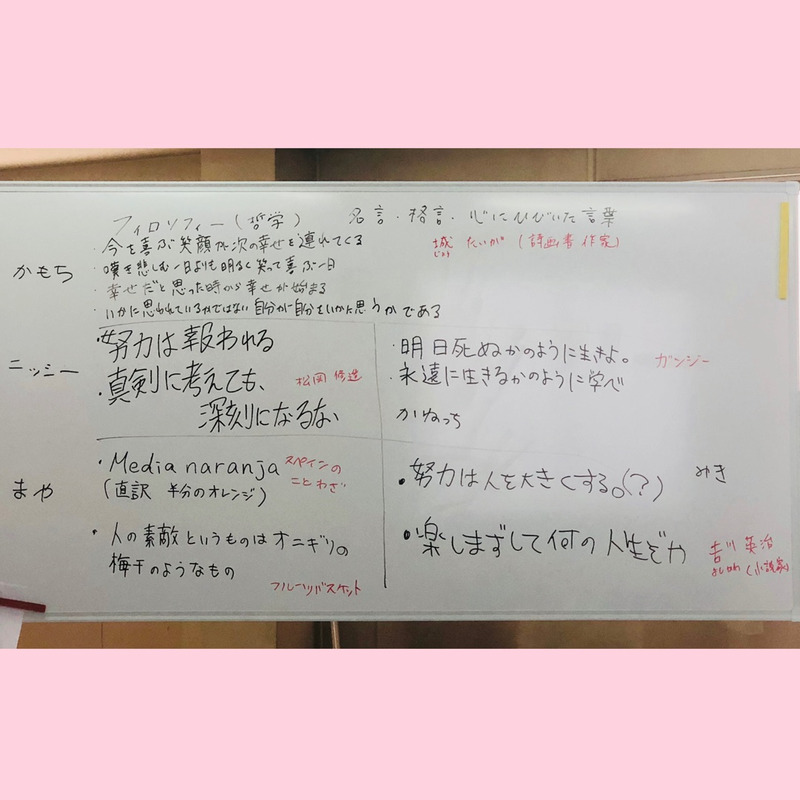 フィロソフィー(哲学) 名言・格言・心にひびいた言葉
かもち
・今を喜ぶ笑顔が次の幸せを連れてくる
城 たいが (詩画書作家)
じょう
・嘆き悲しむ一日よりも明るく笑って喜ぶ一日
・幸せだと思った時から幸せが始まる
・いかに思われているかではない 自分が自分をいかに思うかである
ニッシー
・努力は報われる
・真剣に考えても、
深刻になるな
松岡 修造
・明日死ぬかのように生きよ。
・永遠に生きるかのように学べ
ガンジー
かねっち
まや
・Media naranja
(直訳 半分のオレンジ)
スペインの
ことわざ
・人の素敵というものはオニギリの
梅干のようなもの
フルーツバスケット
・努力は人を大きくする。(?)
みき
・楽しまずして何の人生ぞや
吉川 英治
よしかわ (小説家)